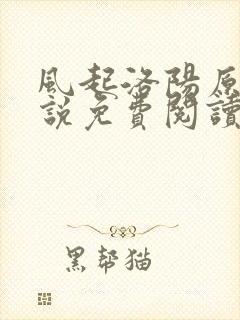 風起洛陽原
說免費閱讀
黑幫猫